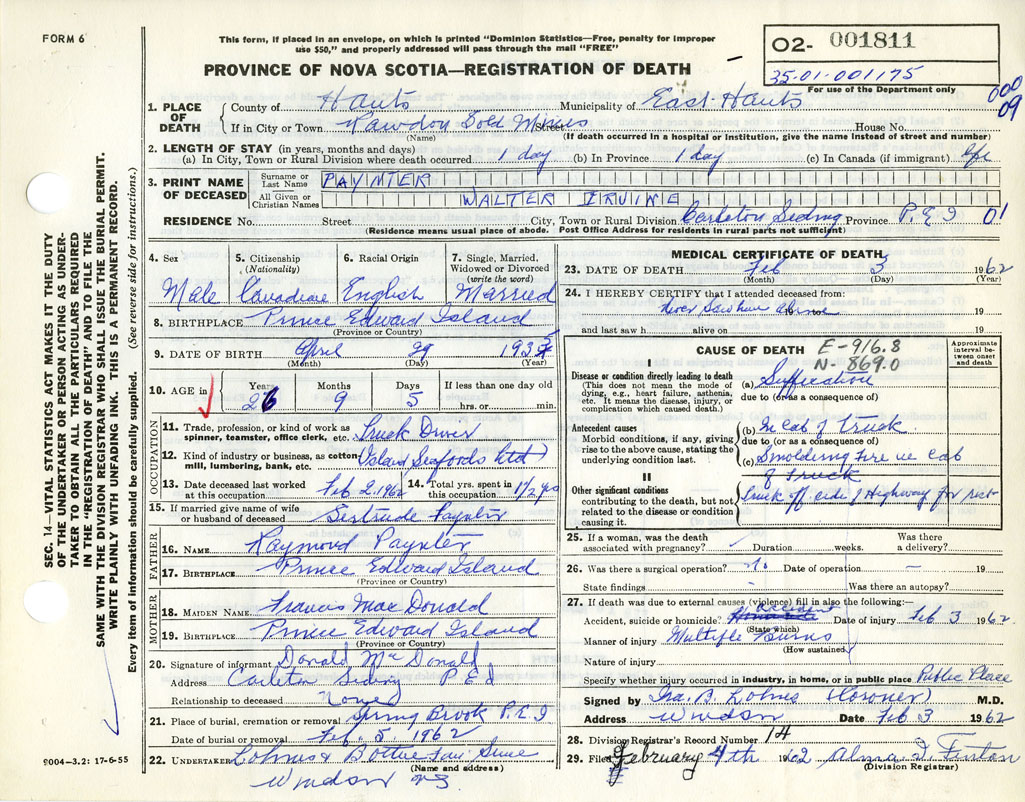 FORM 6
This form, if placed in an envelope, on which is printed "Dominion Statistics—Free, penalty for improper
use $50," and properly addressed will pass through the mail "FREE"
O2- 001811
35-01-001175
For use of the Department only
PROVINCE OF NOVA SCOTIA—REGISTRATION OF DEATH
000
09
1. PLACE OF DEATH
County of Hants Municipality of East Hants
If in City or Town Rawdon Gold Mines Street House No.
(Name) (If death occurred in a hospital or institution, give the name instead of street and number)
2. LENGTH OF STAY (in years, months and days)
(a) In City, Town or Rural Division where death occurred 1 day (b) In Province 1 day (c) In Canada (if immigrant) life
3. PRINT NAME OF DECEASED
Surname or Last Name PAYNTER
All Given or Christian Names WALTER IRVINE
RESIDENCE No. Street City, Town or Rural Division Carleton Siding Province P.E.I 01
(Residence means usual place of abode. Post Office Address for residents in rural parts not sufficient)
4. Sex Male
5. Citizenship (Nationality) Canadian
6. Racial Origin English
7. Single, Married, Widowed or Divorced (write the word) Married
8. BIRTHPLACE Prince Edward Island
(Province or Country)
9. DATE OF BIRTH April 29 1935
(Month) (Day) (Year)
10. AGE in Years 26 Months 9 Days 5 If less than one day old
hrs. or min.
OCCUPATION
11. Trade, profession, or kind of work as
spinner, teamster, office clerk, etc. Truck Driver
12. Kind of industry or business, as cotton-
mill, lumbering, bank, etc. Island Seafoods Ltd
13. Date deceased last worked
at this occupation Feb 2, 1962
14. Total yrs. spent in
this occupation 1 1/2 yrs
15. If married give name of wife
or husband of deceased Gertrude Paynter
FATHER
16. NAME Raymond Paynter
17. BIRTHPLACE Prince Edward Island
(Province or Country)
MOTHER
18. MAIDEN NAME Francis MacDonald
19. BIRTHPLACE Prince Edward Island
(Province or Country)
20. Signature of informant Donald McDonald
Address Carleton Siding P E I
Relationship to deceased None
21. Place of burial, cremation or removal Spring Brook P.E.I
Date of burial or removal Feb. 5. 1962
22. UNDERTAKER
(Name and address)
Windsor NS
MEDICAL CERTIFICATE OF DEATH
23. DATE OF DEATH Feb 3 1962
(Month) (Day) (Year)
24. I HEREBY CERTIFY that I attended deceased from:
Never Saw him alive 19
and last saw h alive on 19
CAUSE OF DEATH E-916.8
N-869.0
Approximate interval between onset and death
I
Disease or condition directly leading to death
(This does not mean the mode of
dying, e.g., heart failure, asthenia,
etc. It means the disease, injury, or
complication which caused death.)
(a) Suffocation
due to (or as a consequence of)
Antecedent causes
Morbid conditions, if any, giving
rise to the above cause, stating the
underlying condition last.
(b) In Cab of truck
due to (or as a consequence of)
(c) Smolding Fire in cab
of truck
II
Other significant conditions
contributing to the death, but not
related to the disease or condition
causing it.
Truck off side of Highway for rest
25. If a woman, was the death
associated with pregnancy? Duration weeks. Was there
a delivery?
26. Was there a surgical operation? no Date of operation — 19
State findings - Was there an autopsy?
27. If death was due to external causes (violence) fill in also the following:—
Accident, suicide or homicide? Accident Date of injury Feb 3 1962
(State which)
Manner of injury Multiple Burns
(How sustained)
Nature of injury
Specify whether injury occurred in industry, in home, or in public place Public Place
Signed by Ira. B. Lohnes (Coroner) M.D.
Address Windsor Date Feb 3 1962
28. Division Registrar's Record Number 14
29. Filed February 4th 1962 Alma
(Division Registrar)
9004—3.2: 17-6-55
SEC. 14—VITAL STATISTICS ACT MAKES IT THE DUTY
OF THE UNDERTAKER OR PERSON ACTING AS UNDER-
TAKER TO OBTAIN ALL THE PARTICULARS REQUIRED
IN THE "REGISTRATION OF DEATH" AND TO FILE THE
SAME WITH THE DIVISION REGISTRAR WHO SHALL ISSUE THE BURIAL PERMIT.
WRITE PLAINLY WITH UNFADING INK. THIS IS A PERMANENT RECORD.
Every item of information should be carefully supplied. (See reverse side for instructions.)